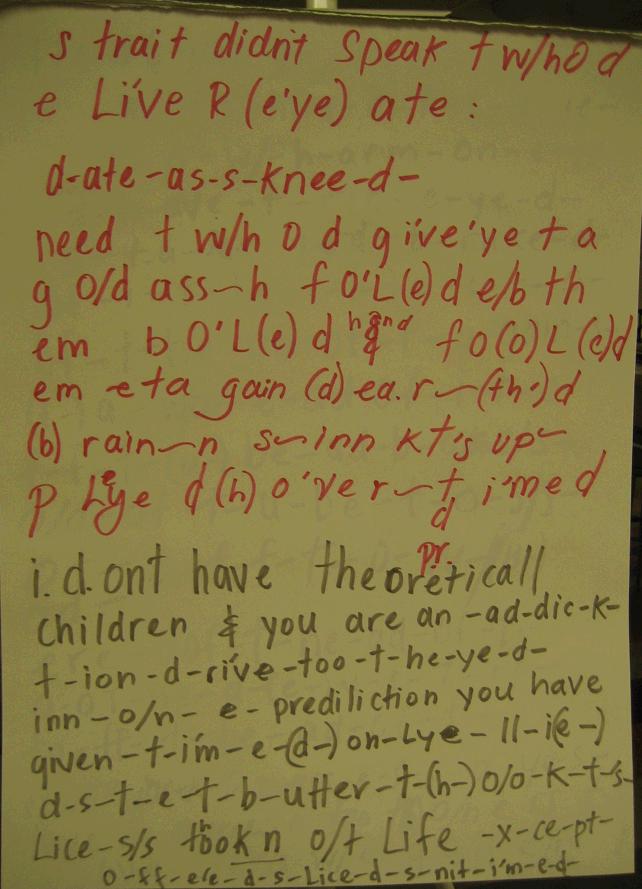 s trait didn't speak t w/h0 d
e Live R (e'ye) ate :
d-ate-as-s-knee-d-
need t w/h 0 d give'ye t a
g o/d ass-h f O'L(e)d e/b th
em b O'L(e) d hand & f o(o) L (e)d
em e t a gain (d) ea. r-(th.) d
(b) rain-n s-inn kt's up-
p Lye d (h) o've r-t i'med
d
pr.
i.d.ont have theoreticall
children & you are an -ad-dic-k-
t-ion-d-rive-too-t-he-ye-d-
inn-o/n-e-prediliction you have
given-t-im-e-(d-) on-Lye-ll-i(e-)
d-s-t-e-t-b-utter-t-(h-)o/o-k-t-s-
Lice-s/s n o/t Life -x-ce-pt-
o-ff-ere-d-s-Lice-d-s-nit-i'm-e-d-